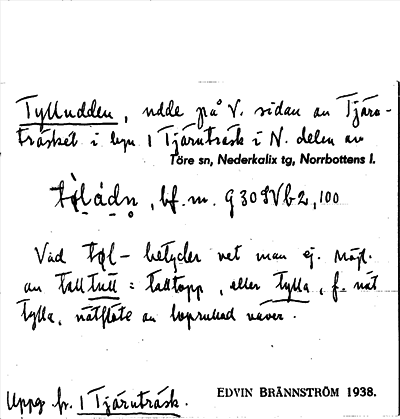 Tylludden, udde på V. sidan av Tjäru-
träsket i byn 1 Tjäruträsk i N. delen av
Töre sn, Nederkalix tg, Norrbottens l.
bf. m. G 30 SV b 2, 100
Vad betyder vet man ej. Möjl.
av talltutt = talltopp, eller tylla, f. nät
tylla, nätflöte av hoprullad näver.
Uppg. fr. 1 Tjäruträsk.
EDVIN BRÄNNSTRÖM 1938.